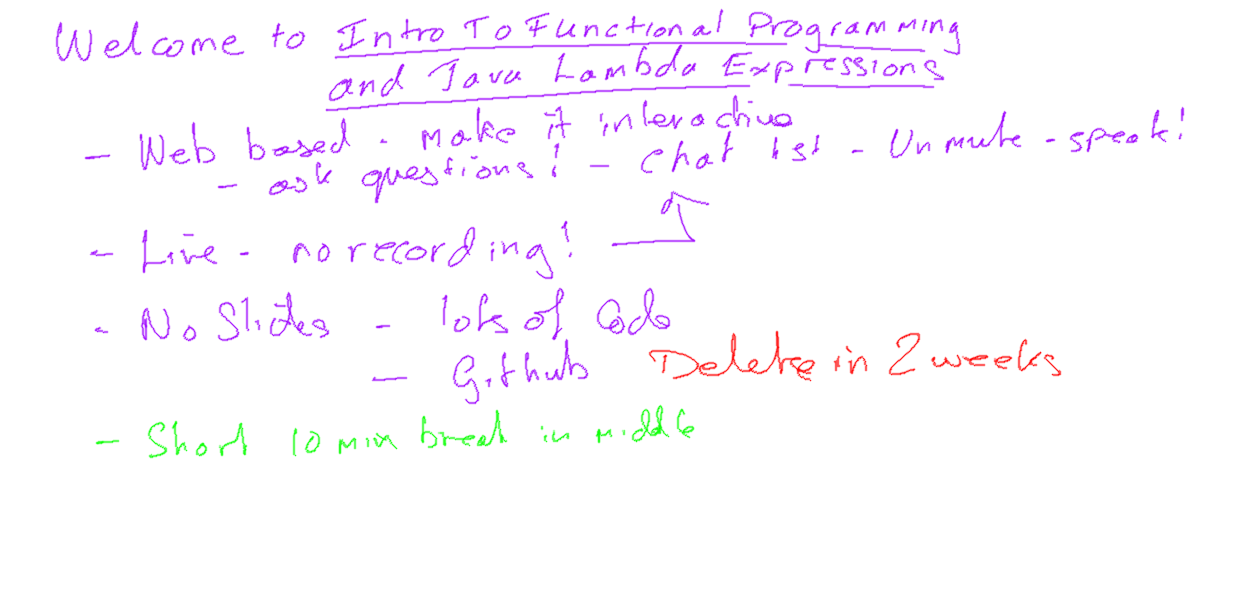 Welcome to Intro To Functional Programming
and Java Lambda Expressions
- Web based - make it interactive
- ask questions! - chat 1st - Unmute - speak!
- Live - no recording!
- No Slides - lots of Code
- Github Delete in 2 weeks
- Short 10 min break in middle